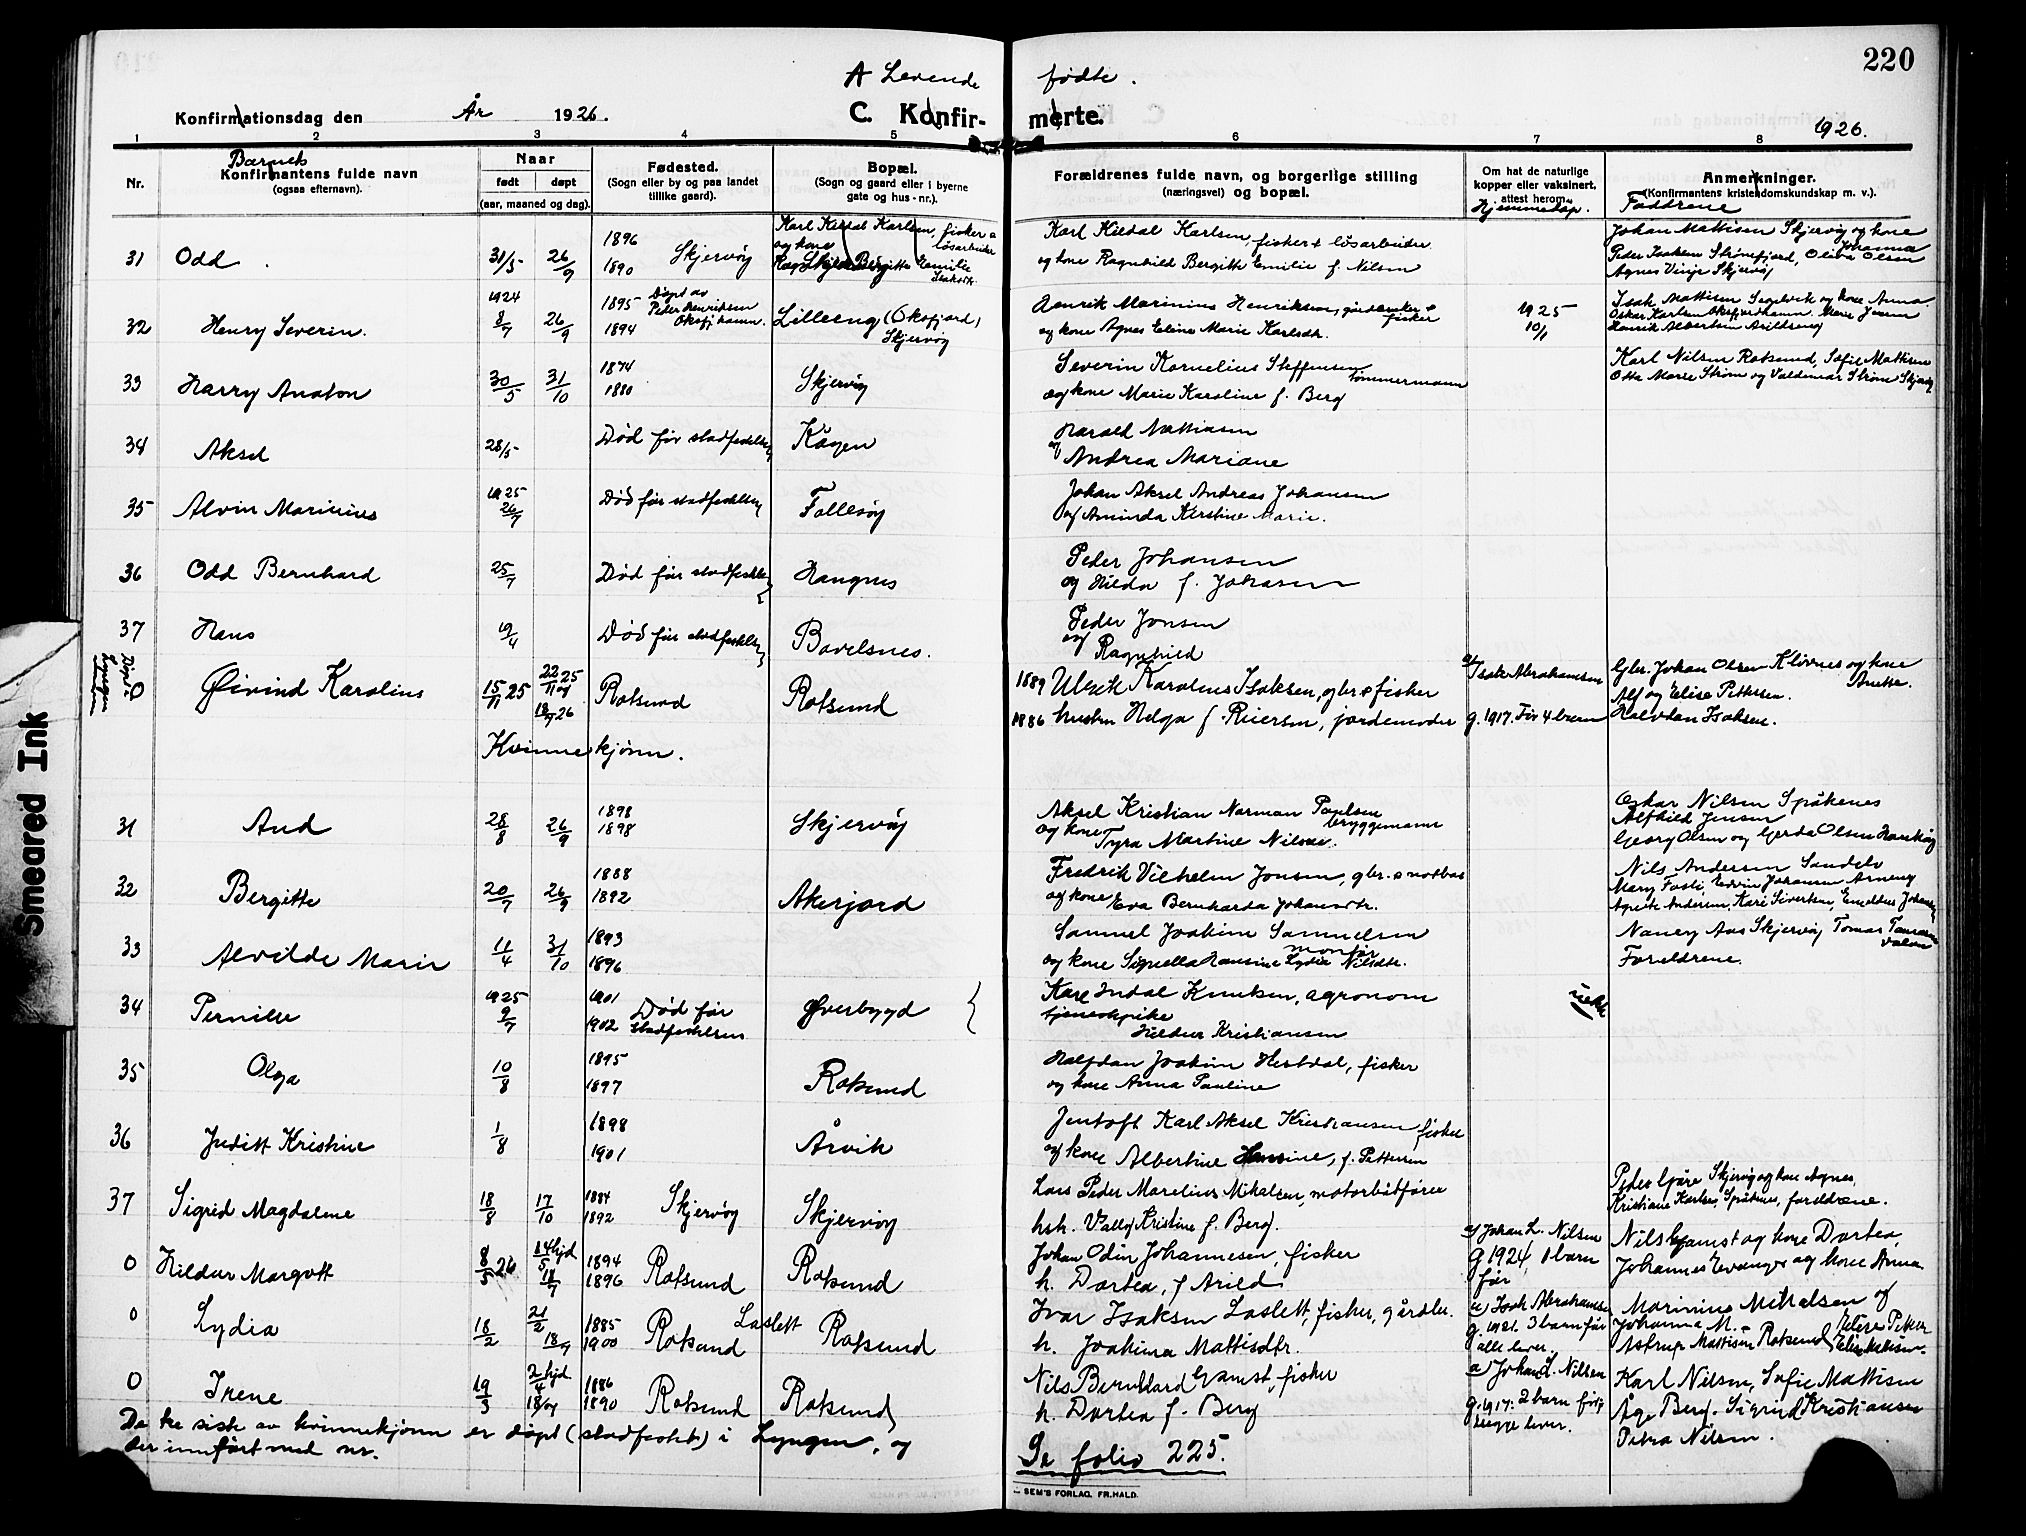 220
A Levende fødte.
Konfirmationsdag den År 1926.
C. Konfirmerte.
1926.
1 2 3 4 5 6 7 8
Nr.
Barnets
Konfirmantens fulde navn
(ogsaa efternavn).
Naar
født døpt
(aar, maaned og dag).
Fødested.
(Sogn eller by og paa landet
tillike gaard).
Bopæl.
(Sogn og gaard eller i byerne
gate og hus-nr.).
Forældrenes fulde navn, og borgerlige stilling
(næringsvei) og bopæl.
Om hat de naturlige
kopper eller vaksinert,
attest herom.
Hjemmedåp.
Anmerkninger.
(Konfirmantens kristendomskundskap m. v.).
Faddrene
31 Odd. 31/5 26/9 1896 1890 Skjervøy
Karl Kildal Karlsen, fisker & løsarbeider
og kone Ragnhild Bergitte Emilie f. Nilsen
Johan Mattisen Skjervøy og kone Johanna
Peder Isaksen Strømfjord, Oliva Olsen
Agnes Vinje Skjervøy
32 Henry Severin. 1924 8/7 26/9 1895 1894
Døpt av
Peder Henriksen
Oksfj.hamn.
Lilleeng (Oksfjord)
Skjervøy
Henrik Marinius Henriksen, gårdbruker & fisker
og kone Agnes Eline Marie Karlsdtr.
1925
10/1
Isak Mattisen Segelvik og kone Anna
Oskar Karlsen Oksfjordhamn. Marie Jensen
Henrik Albertsen Arildseng
33 Harry Anaton 30/5 31/10 1874 1880 Skjervøy
Severin Kornelius Steffensen tømmermann
og kone Marie Karoline f. Berg
Karl Nilsen Rotsund, Sofie Mattisen
Otte Marie Strøm og Valdemar Strøm Skjervøy
34 Aksel 28/5 Død før stadfestelsen Kågen
Harald Mathiasen
og Andrea Mariane
35 Alvin Marinius 1925 26/7 Død før stadfestelsen Follesøy
Johan Aksel Andreas Johansen
og Aminda Kerstine Marie.
36 Odd Bernhard 25/7 Død før stadfestelsen Hangnes
Peder Johansen
og Hilda f. Johansen
37 Hans 19/4 Død før stadfestelsen Bovelsnes.
Peder Jonsen
og Ragnhild
Døpt i
Lyngen
0 Øivind Karolius 15/11 25 22/11 25 og 18/7 26 Rotsund Rotsund
1889 Ulrik Karolius Isaksen, gbr. & fisker
1886 hustru Helga f. Reiersen, jordemoder
a/ Isak Abrahamsen
g. 1917. Før 4 barn
Gbr. Johan Olsen Kløvnes og kone Anette.
Alf og Elise Pettersen.
Halvdan Isaksen.
Kvinnekjønn.
31 Aud 28/8 26/9 1898 1898 Skjervøy
Aksel Kristian Norman Paulsen bryggemann
og kone Tyra Martine Nilsen.
Oskar Nilsen Spåkenes
Alfhild Jensen
Georg Olsen og Gerda Olsen Haukøy
32 Bergitte 20/7 26/9 1888 1892 Akerjord
Fredrik Vilhelm Jonsen, gbr. & notbas
og kone Eva Bernharda Johansdtr.
Nils Andersen Sandelv
Mary Fosli, Edvin Johansen Arnøy
Agnete Andersen, Kare Sivertsen, Emeldus Johansen
33 Alvilde Marie 11/4 31/10 1893 1896
Samuel Joakim Samuelsen montør
og kone Signella Hansine Lydia Nilsdtr.
Nancy Aas Skjervøy Tomas
Foreldrene.
34 Pernille 1925 9/7 1901 1902 Død før
stadfestelsen Øverbygd
Karl Indal Knutsen, agronom
tjenestepike
Hildur Kristiansen
uekte
35 Olga 10/8 1895 1897 Rotsund
Halfdan Joakim Hestdal, fisker
og kone Anna Pauline
36 Juditt Kristine 1/8 1898 1901 Årvik
Jentoft Karl Aksel Kristiansen fisker
og kone Albertine Hansine, f. Pettersen
37 Sigrid Magdalene 18/8 17/10 1884 1892 Skjervøy Skjervøy
Lars Peder Marelius Mikalsen, motorbåtfører
hst. Valley Kristine f. Berg.
Peder Gjære Skjervøy og kone Agnes,
Kristiane Karlsen, Spåknes, foreldrene.
0 Hildur Margott 8/5 26 14/5 hjd 18/7 1894 1896 Rotsund Rotsund
Johan Odin Johannesen, fisker
h. Dortea, f. Arild
a/ Johan L. Nilsen
g 1924, 1 barn
før
Nils Gamst og kone Dortea,
Johannes Evanger og kone Anna
0 Lydia 18/2 21/2 18/7 1885 1900 Rotsund Laslett Rotsund
Ivar Isaksen Laslett, fisker, gårdbr.
h. Joakima Mattisdtr.
a/ Isak Abrahamsen
g. 1921. 3 barn før
alle lever.
Marinius Mikkelsen og
Johanna M. -
Astrup Mattisen Rotsund
0 Irene 19/3 2/4 hjd 18/7 1886 1890 Rotsund Rotsund
Nils Bernhard Gamst, fisker
h. Dortea f. Berg
a/ Johan L. Nilsen
g. 1917. 2 barn før,
begge lever.
Karl Nilsen, Sofie Mattisen
Åge Berg. Sigrid Kristiansen
Petra Nilsen.
De tre siste av kvinnekjønn er døpt (stadfestet) i Lyngen, og
der innført med nr.
Se folio 225.
SEM'S FORLAG, FR.HALD.
Smeared Ink